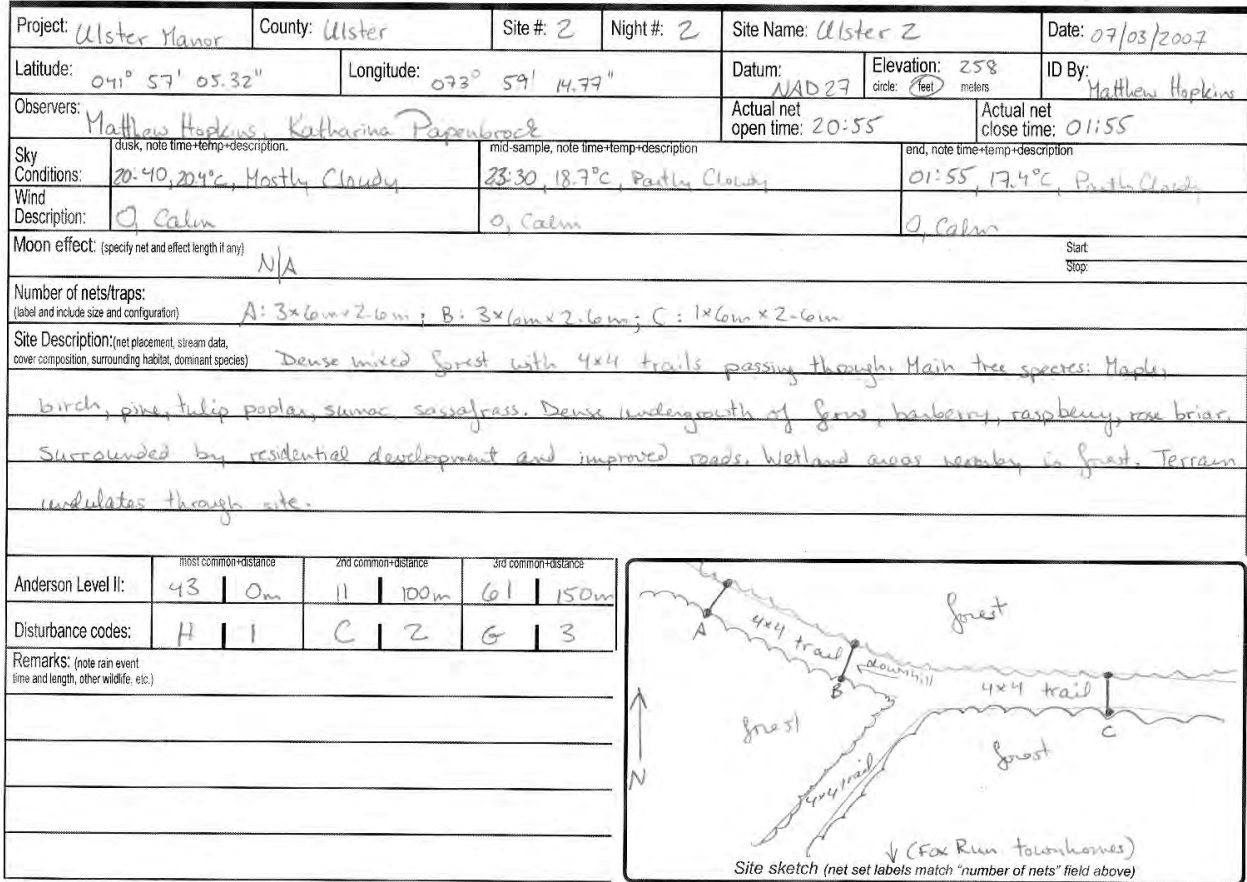 Project: Ulster Manor County: Ulster Site #: 2 Night #: 2 Site Name: Ulster 2 Date: 07/03/2007
Latitude: 041° 57' 05.32" Longitude: 073° 59' 14.77" Datum: NAD27 Elevation: 258 circle: feet meters ID By: Matthew Hopkins
Observers: Matthew Hopkins, Katharina Papenbrock Actual net open time: 20:55 Actual net close time: 01:55
Sky Conditions: dusk, note time+temp+description. 20:40, 20.4°C, Mostly Cloudy mid-sample, note time+temp+description 23:30, 18.7°C, Partly Cloudy end, note time+temp+description 01:55, 17.4°C, Partly Cloudy
Wind Description: 0, Calm 0, Calm 0, Calm
Moon effect: (specify net and effect length if any) N/A Start: Stop:
Number of nets/traps:
(label and include size and configuration) A: 3x6mx2.6m; B: 3x6mx2.6m; C: 1x6m x 2.6m
Site Description: (net placement, stream data,
cover composition, surrounding habitat, dominant species) Dense mixed forest with 4x4 trails passing through. Main tree species: Maple,
birch, pine, tulip poplar, sumac, sassafrass. Dense undergrowth of ferns, barberry, raspberry, rose briar.
Surrounded by residential development and improved roads. Wetland areas nearby in forest. Terrain
undulates through site.
most common+distance 2nd common+distance 3rd common+distance
Anderson Level II: 43 0m 11 100m 61 150m
Disturbance codes: H 1 C 2 G 3
Remarks: (note rain event
time and length, other wildlife, etc.)
forest
A 4x4 trail
B downhill
4x4 trail
C
forest
forest
4x4 trail
N
↓ (Fox Run townhomes)
Site sketch (net set labels match "number of nets" field above)